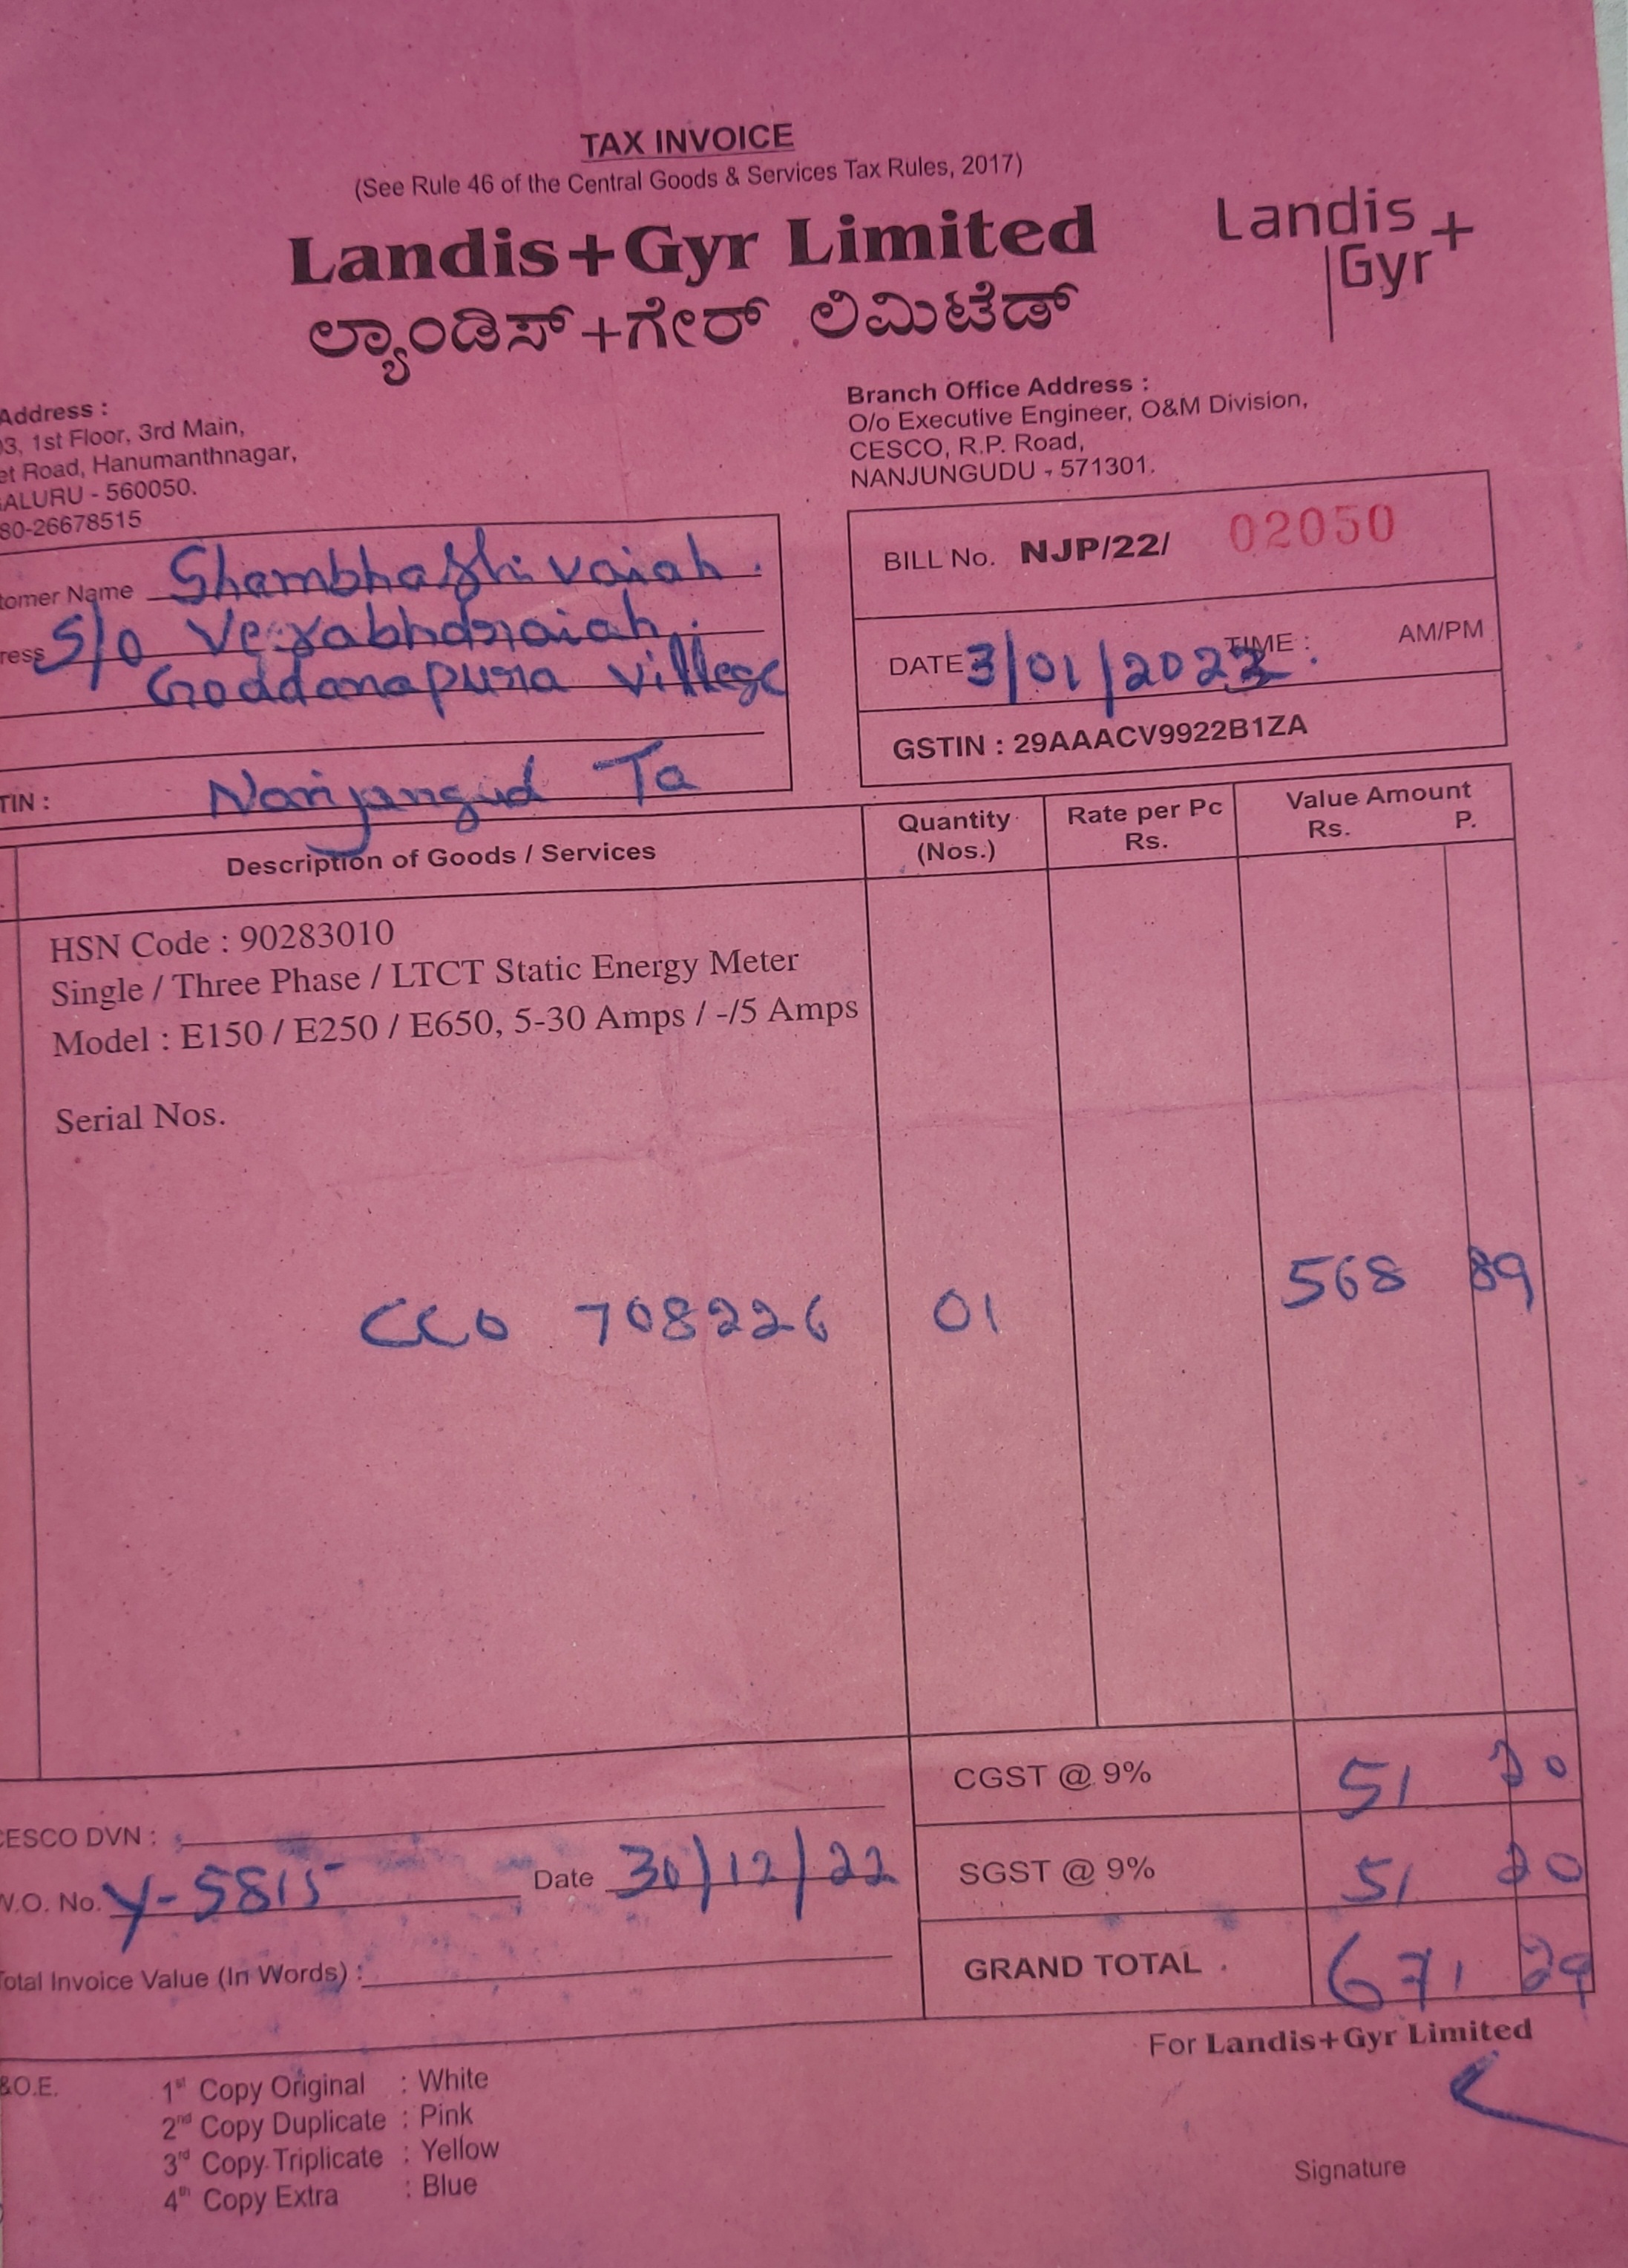 TAX INVOICE
(See Rule 46 of the Central Goods & Services Tax Rules, 2017)
Landis+Gyr Limited
ಲ್ಯಾಂಡಿಸ್+ಗೇರ್ ಲಿಮಿಟೆಡ್
Landis
Gyr+
Address :
03, 1st Floor, 3rd Main,
et Road, Hanumanthnagar,
GALURU - 560050.
80-26678515
Branch Office Address :
O/o Executive Engineer, O&M Division,
CESCO, R.P. Road,
NANJUNGUDU - 571301.
tomer Name Shambhashivaiah.
ress S/o Veerabhdraiah.
Goddanapura Village
TIN : Nanjangud Ta
BILL No. NJP/22/ 02050
DATE 3/01/2023. TIME : AM/PM
GSTIN : 29AAACV9922B1ZA
Description of Goods / Services
Quantity (Nos.)
Rate per Pc Rs.
Value Amount Rs. P.
HSN Code : 90283010
Single / Three Phase / LTCT Static Energy Meter
Model : E150 / E250 / E650, 5-30 Amps / -/5 Amps
Serial Nos.
CCO 708226 01 568 89
CGST @ 9% 51 20
SGST @ 9% 51 20
GRAND TOTAL 671 29
CESCO DVN :
W.O. No. Y-5815 Date 30/12/22
Total Invoice Value (In Words) :
For Landis+Gyr Limited
&O.E.
1st Copy Original : White
2nd Copy Duplicate : Pink
3rd Copy Triplicate : Yellow
4th Copy Extra : Blue
Signature